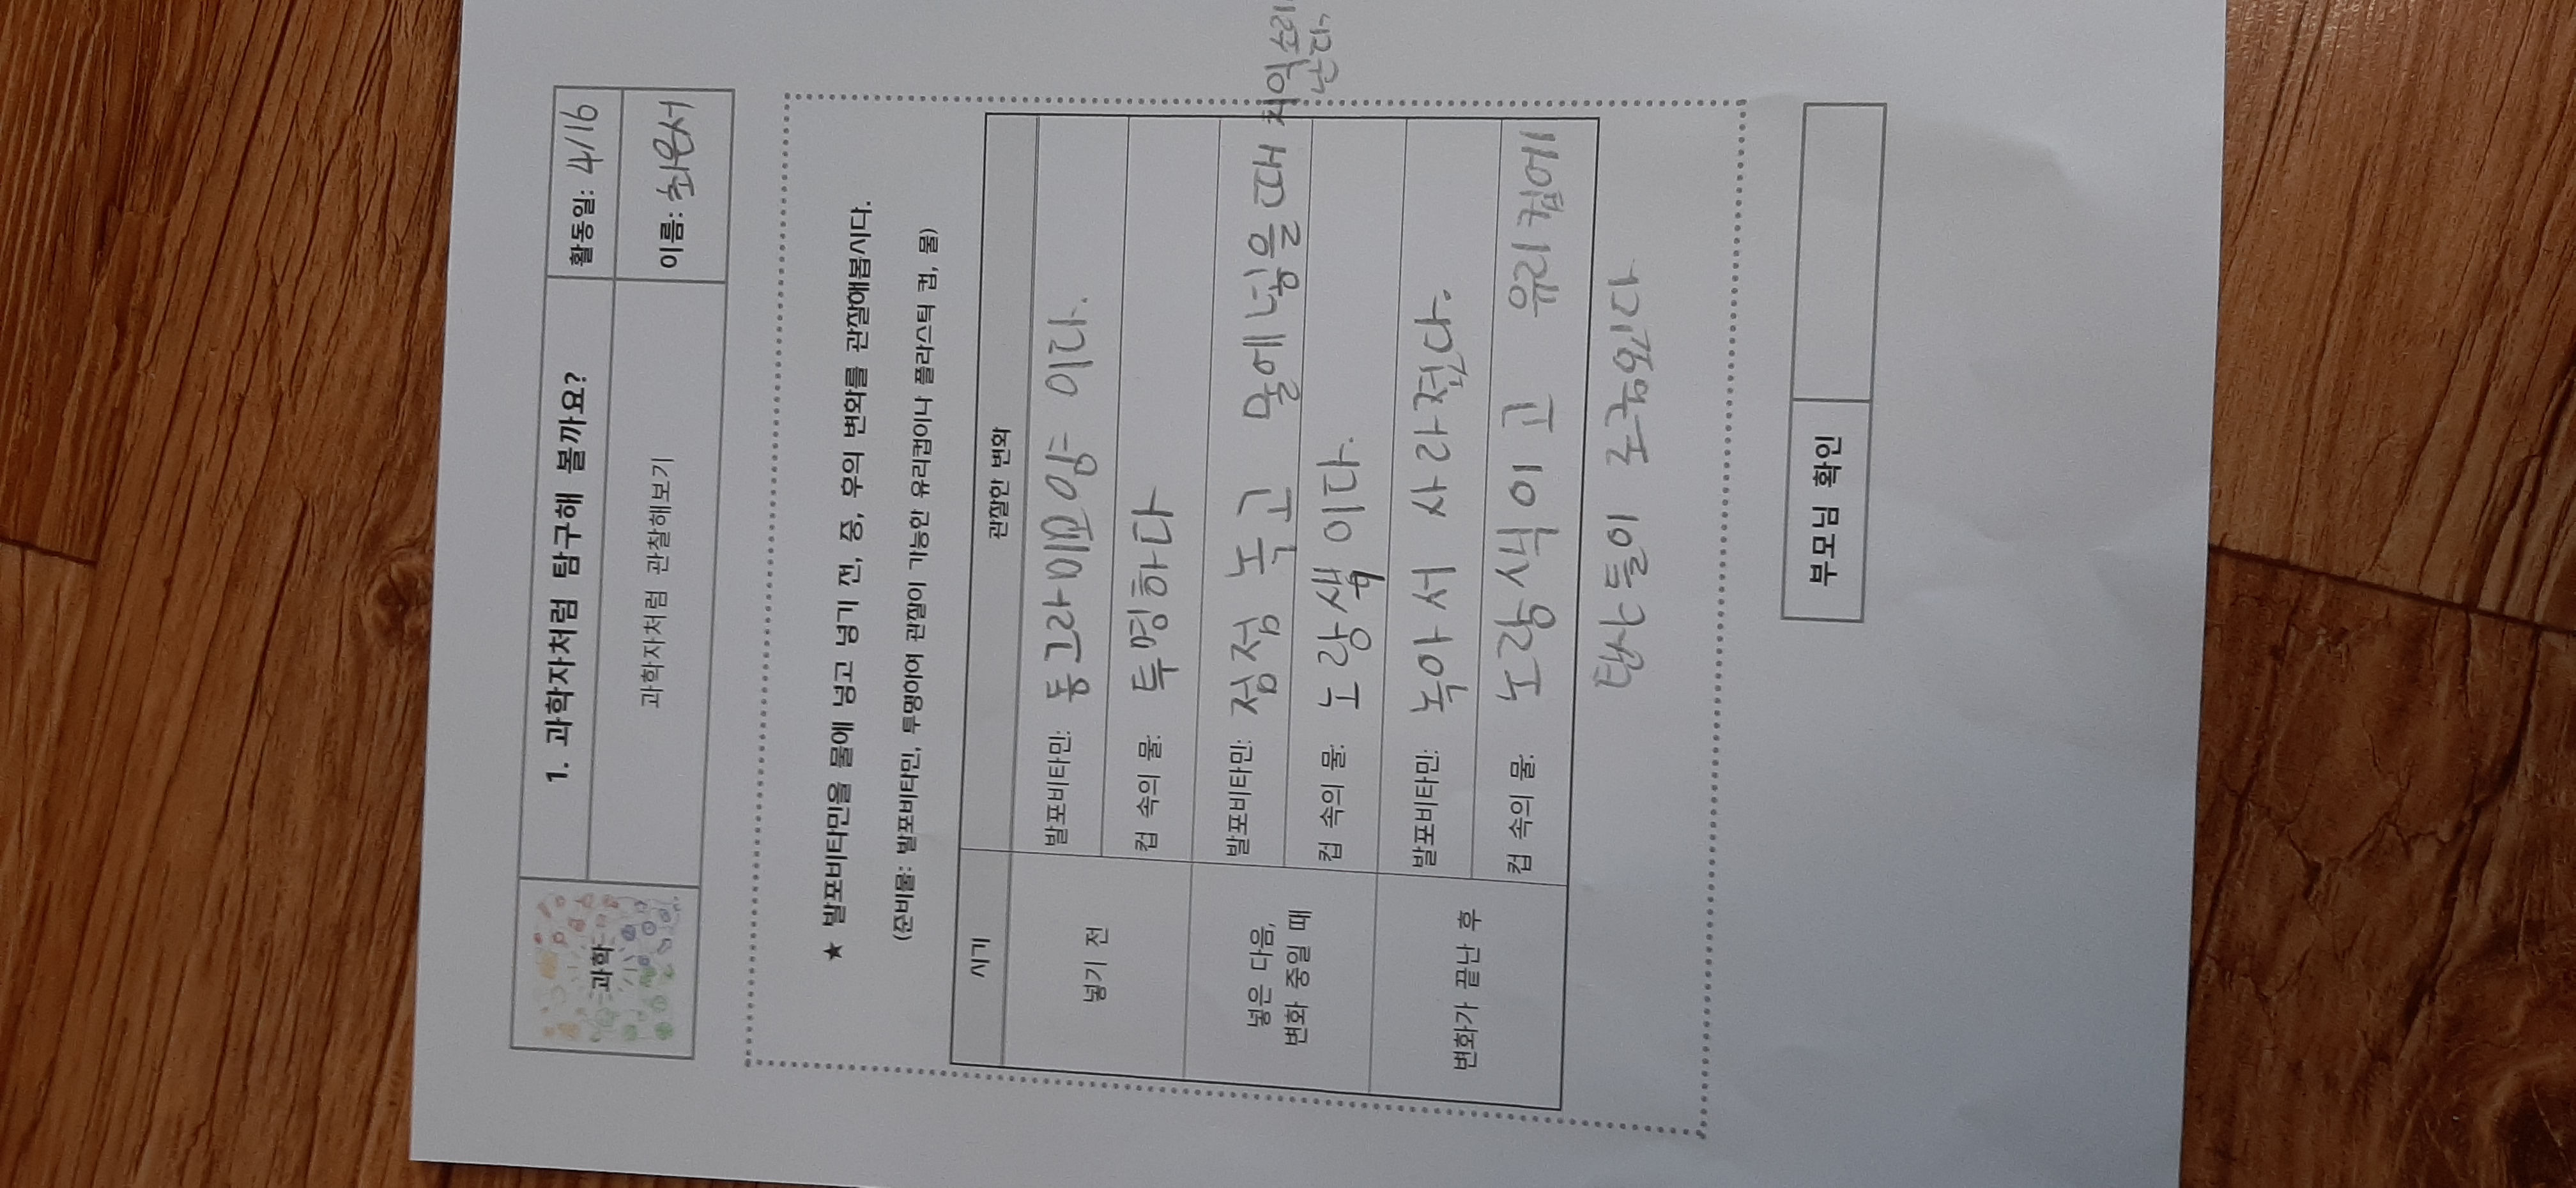 과학
1. 과학자처럼 탐구해 볼까요?
활동일: 4/16
과학자처럼 관찰해보기
이름: 최윤서
★ 발포비타민을 물에 넣고 넣기 전, 중, 후의 변화를 관찰해봅시다.
(준비물: 발포비타민, 투명이어 관찰이 가능한 유리컵이나 플라스틱 컵, 물)
시기
관찰한 변화
넣기 전
발포비타민: 동그라미모양 이다.
컵 속의 물: 투명하다
넣은 다음,
변화 중일 때
발포비타민: 점점 녹고 물에넣을때 치익소리
난다.
컵 속의 물: 노랑색이다.
변화가 끝난 후
발포비타민: 녹아서 사라졌다.
컵 속의 물: 노랑색이고 유리컵에
탄산들이
부모님 확인